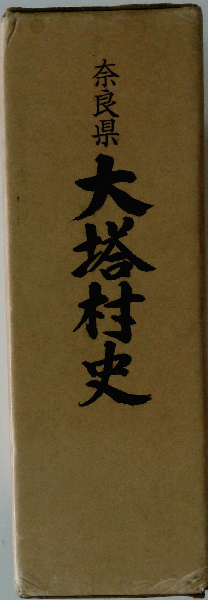 奈良県
大塔村史